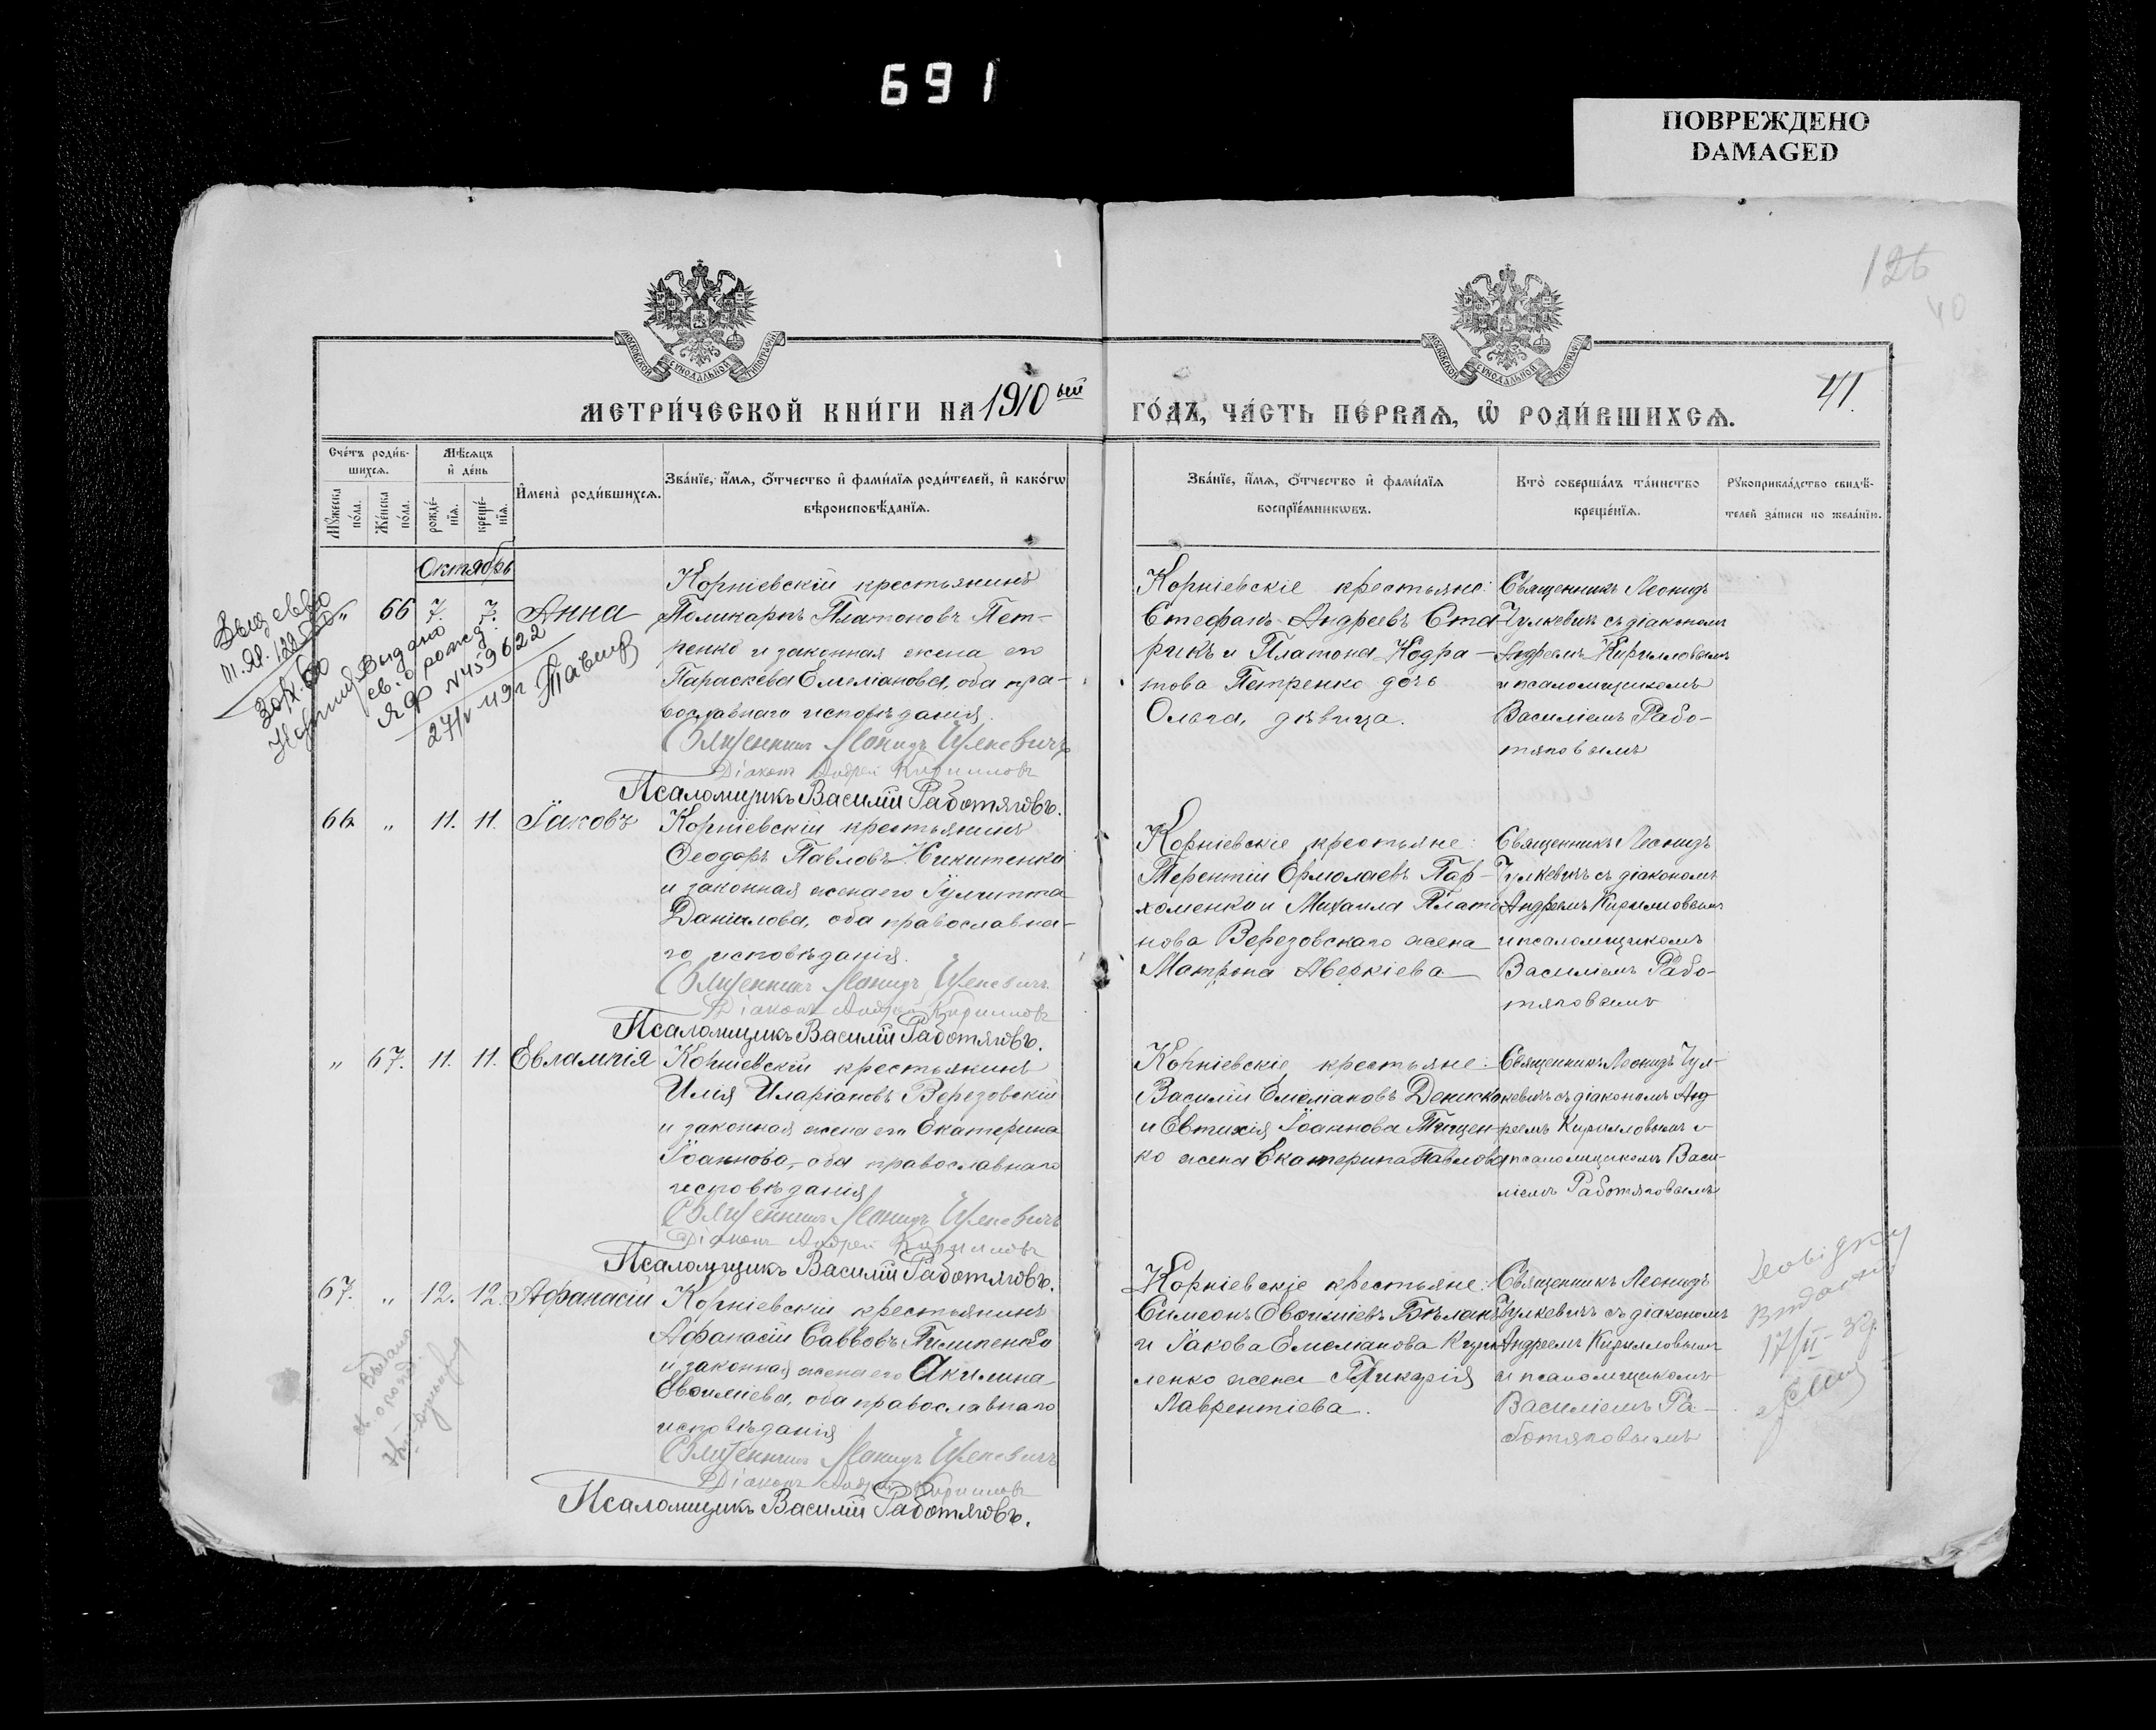 691
ПОВРЕЖДЕНО
DAMAGED
126
40
МОСКОВСКОЙ СѴНОДАЛЬНОЙ ТИПОГРАФІИ
МОСКОВСКОЙ СѴНОДАЛЬНОЙ ТИПОГРАФІИ
41.
МЕТРИ́ЧЕСКОЙ КНИ́ГИ НА 1910 ый
ГО́ДЪ, ЧА́СТЬ ПЕ́РВАѦ, Ѡ҆ РОДИ́ВШИХСѦ.
Сче́тъ роди́в-
шихсѧ.
Мꙋ́жеска
по́ла.
Же́нска
по́ла.
Мѣ́сѧцъ
и҆ де́нь
рожде́-
нїѧ.
креще́-
нїѧ.
И҆мена̀ роди́вшихсѧ.
Зва́нїе, и҆́мѧ, ѻ҆́тчество и҆ фами́лїѧ роди́телей, и҆ како́гѡ
вѣроисповѣ́данїѧ.
Зва́нїе, и҆́мѧ, ѻ҆́тчество и҆ фами́лїѧ
воспрїе́мникѡвъ.
Кто̀ соверша́лъ та́инство
креще́нїѧ.
Рꙋкоприкла́дство свидѣ́-
телей за́писи по жела́нїю.
Октябрь
„ 66 7. 7. Анна
Корніевскій крестьянинъ
Поликарпъ Платоновъ Пет-
ренко и законная жена его
Параскева Емеліанова, оба пра-
вославнаго исповѣданія.
Священникъ Леонидъ Чулкевичъ
Діаконъ Андрей Кирилловъ
Псаломщикъ Василій Работяговъ.
Корніевскіе крестьяне:
Стефанъ Андреевъ Ста-
рикъ и Платона Кодра-
това Петренко дочь
Ольга, дѣвица.
Священникъ Леонидъ
Чулкевичъ съ діакономъ
Андреемъ Кирилловымъ
и псаломщикомъ
Василіемъ Рабо-
тяговымъ
Выдано
св. о рожд.
ЯФ N459622
27/V 49г
66 „ 11. 11. Іаковъ
Корніевскій крестьянинъ
Ѳеодоръ Павловъ Никитенко
и законная жена его Іулитта
Даніилова, оба православна-
го исповѣданія.
Священникъ Леонидъ Чулкевичъ.
Діаконъ Андрей Кирилловъ
Псаломщикъ Василій Работяговъ.
Корніевскіе крестьяне:
Терентій Ермолаевъ Пар-
хоменко и Михаила Плато
нова Верезовскаго жена
Матрона Аверкіева
Священникъ Леонидъ
Чулкевичъ съ діакономъ
Андреемъ Кирилловымъ
и псаломщикомъ
Василіемъ Рабо-
тяговымъ
„ 67. 11. 11. Евлампія
Корніевскій крестьянинъ
Илія Иларіоновъ Верезовскій
и законная жена его Екатерина
Іоаннова, оба православнаго
исповѣданія
Священникъ Леонидъ Чулкевичъ
Діаконъ Андрей Кирилловъ
Псаломщикъ Василій Работяговъ.
Корніевскіе крестьяне:
Василій Емеліановъ Дениско
и Евтихія Іоаннова Тищен-
ко жена Екатерина Павлова
Священникъ Леонидъ Чул-
кевичъ съ діакономъ Анд-
реемъ Кирилловымъ и
псаломщикомъ Васи-
ліемъ Работяговымъ
67. „ 12. 12. Аѳанасій
Корніевскій крестьянинъ
Аѳанасій Саввовъ Пилипенко
и законная жена его Акилина
Евѳиміева, оба православнаго
исповѣданія
Священникъ Леонидъ Чулкевичъ
Діаконъ Андрей Кирилловъ
Псаломщикъ Василій Работяговъ.
Корніевскіе крестьяне:
Симеонъ Евѳиміевъ Бѣланъ
и Іакова Емеліанова
ленко жена Гликерія
Лаврентіева.
Священникъ Леонидъ
Чулкевичъ съ діакономъ
Андреемъ Кирилловымъ
и псаломщикомъ
Василіемъ Ра-
ботяговымъ
Выдано
о рожд.
17/II